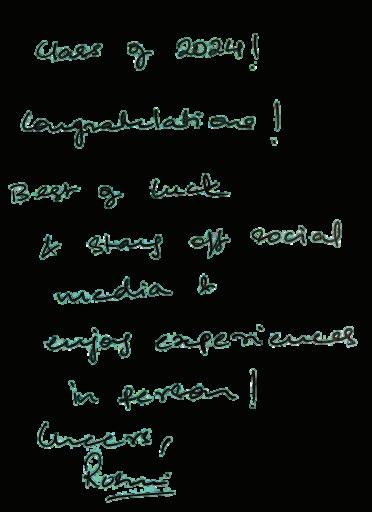 Class of 2024!
Congratulations!
Best of luck
& stay off social
media &
enjoy experiences
in person!
Cheers,